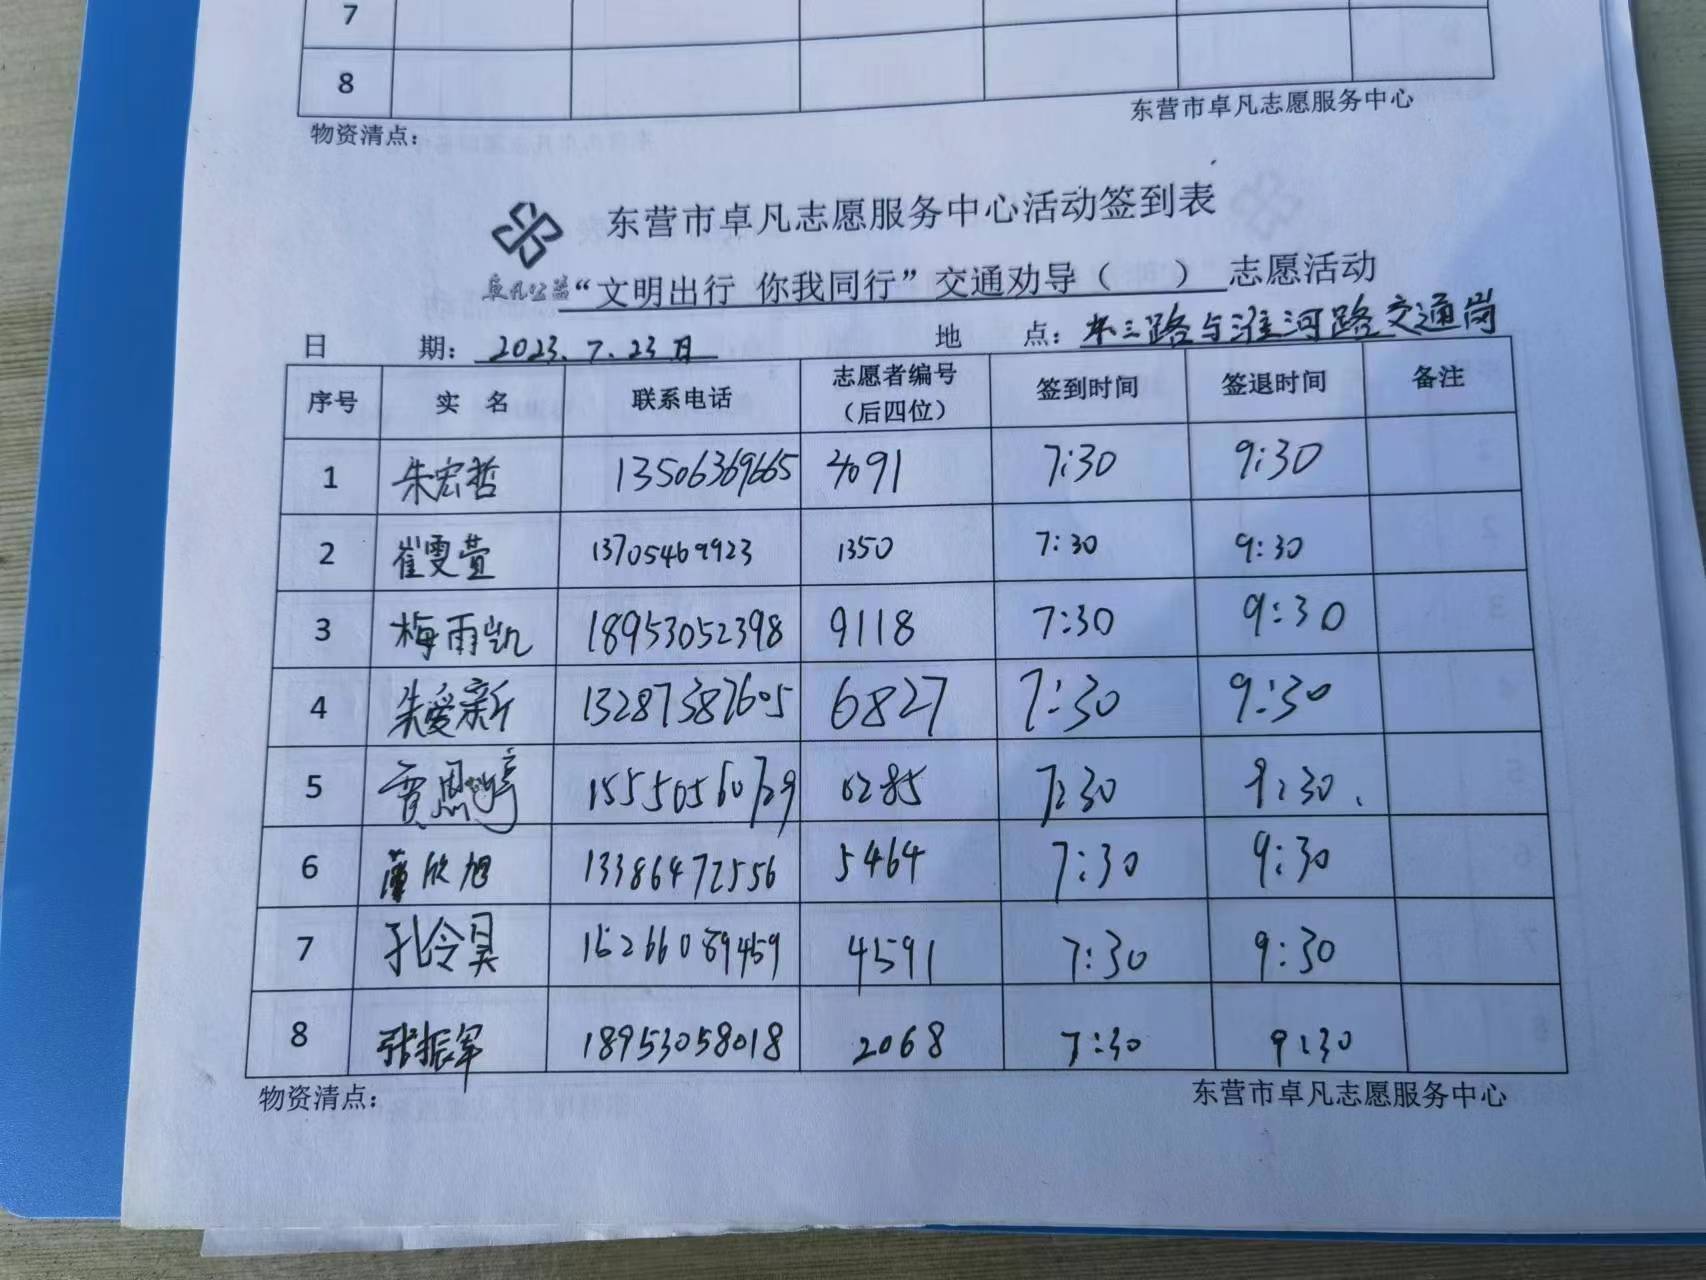 7
8
物资清点： 东营市卓凡志愿服务中心
东营市卓凡志愿服务中心活动签到表
卓凡公益 “文明出行 你我同行” 交通劝导（ ） 志愿活动
日 期： 2023.7.23日 地 点： 东三路与淮河路交通岗
序号 实 名 联系电话 志愿者编号（后四位） 签到时间 签退时间 备注
1 朱宏哲 13506369665 4091 7:30 9:30
2 崔雯萱 13705469923 1350 7:30 9:30
3 梅雨凯 18953052398 9118 7:30 9:30
4 朱爱新 13287387605 6827 7:30 9:30
5 贾思婷 15550560729 0285 7:30 9:30
6 欣旭 13386472556 5464 7:30 9:30
7 孔令昊 15266089459 4591 7:30 9:30
8 张振军 18953058018 2068 7:30 9:30
物资清点： 东营市卓凡志愿服务中心